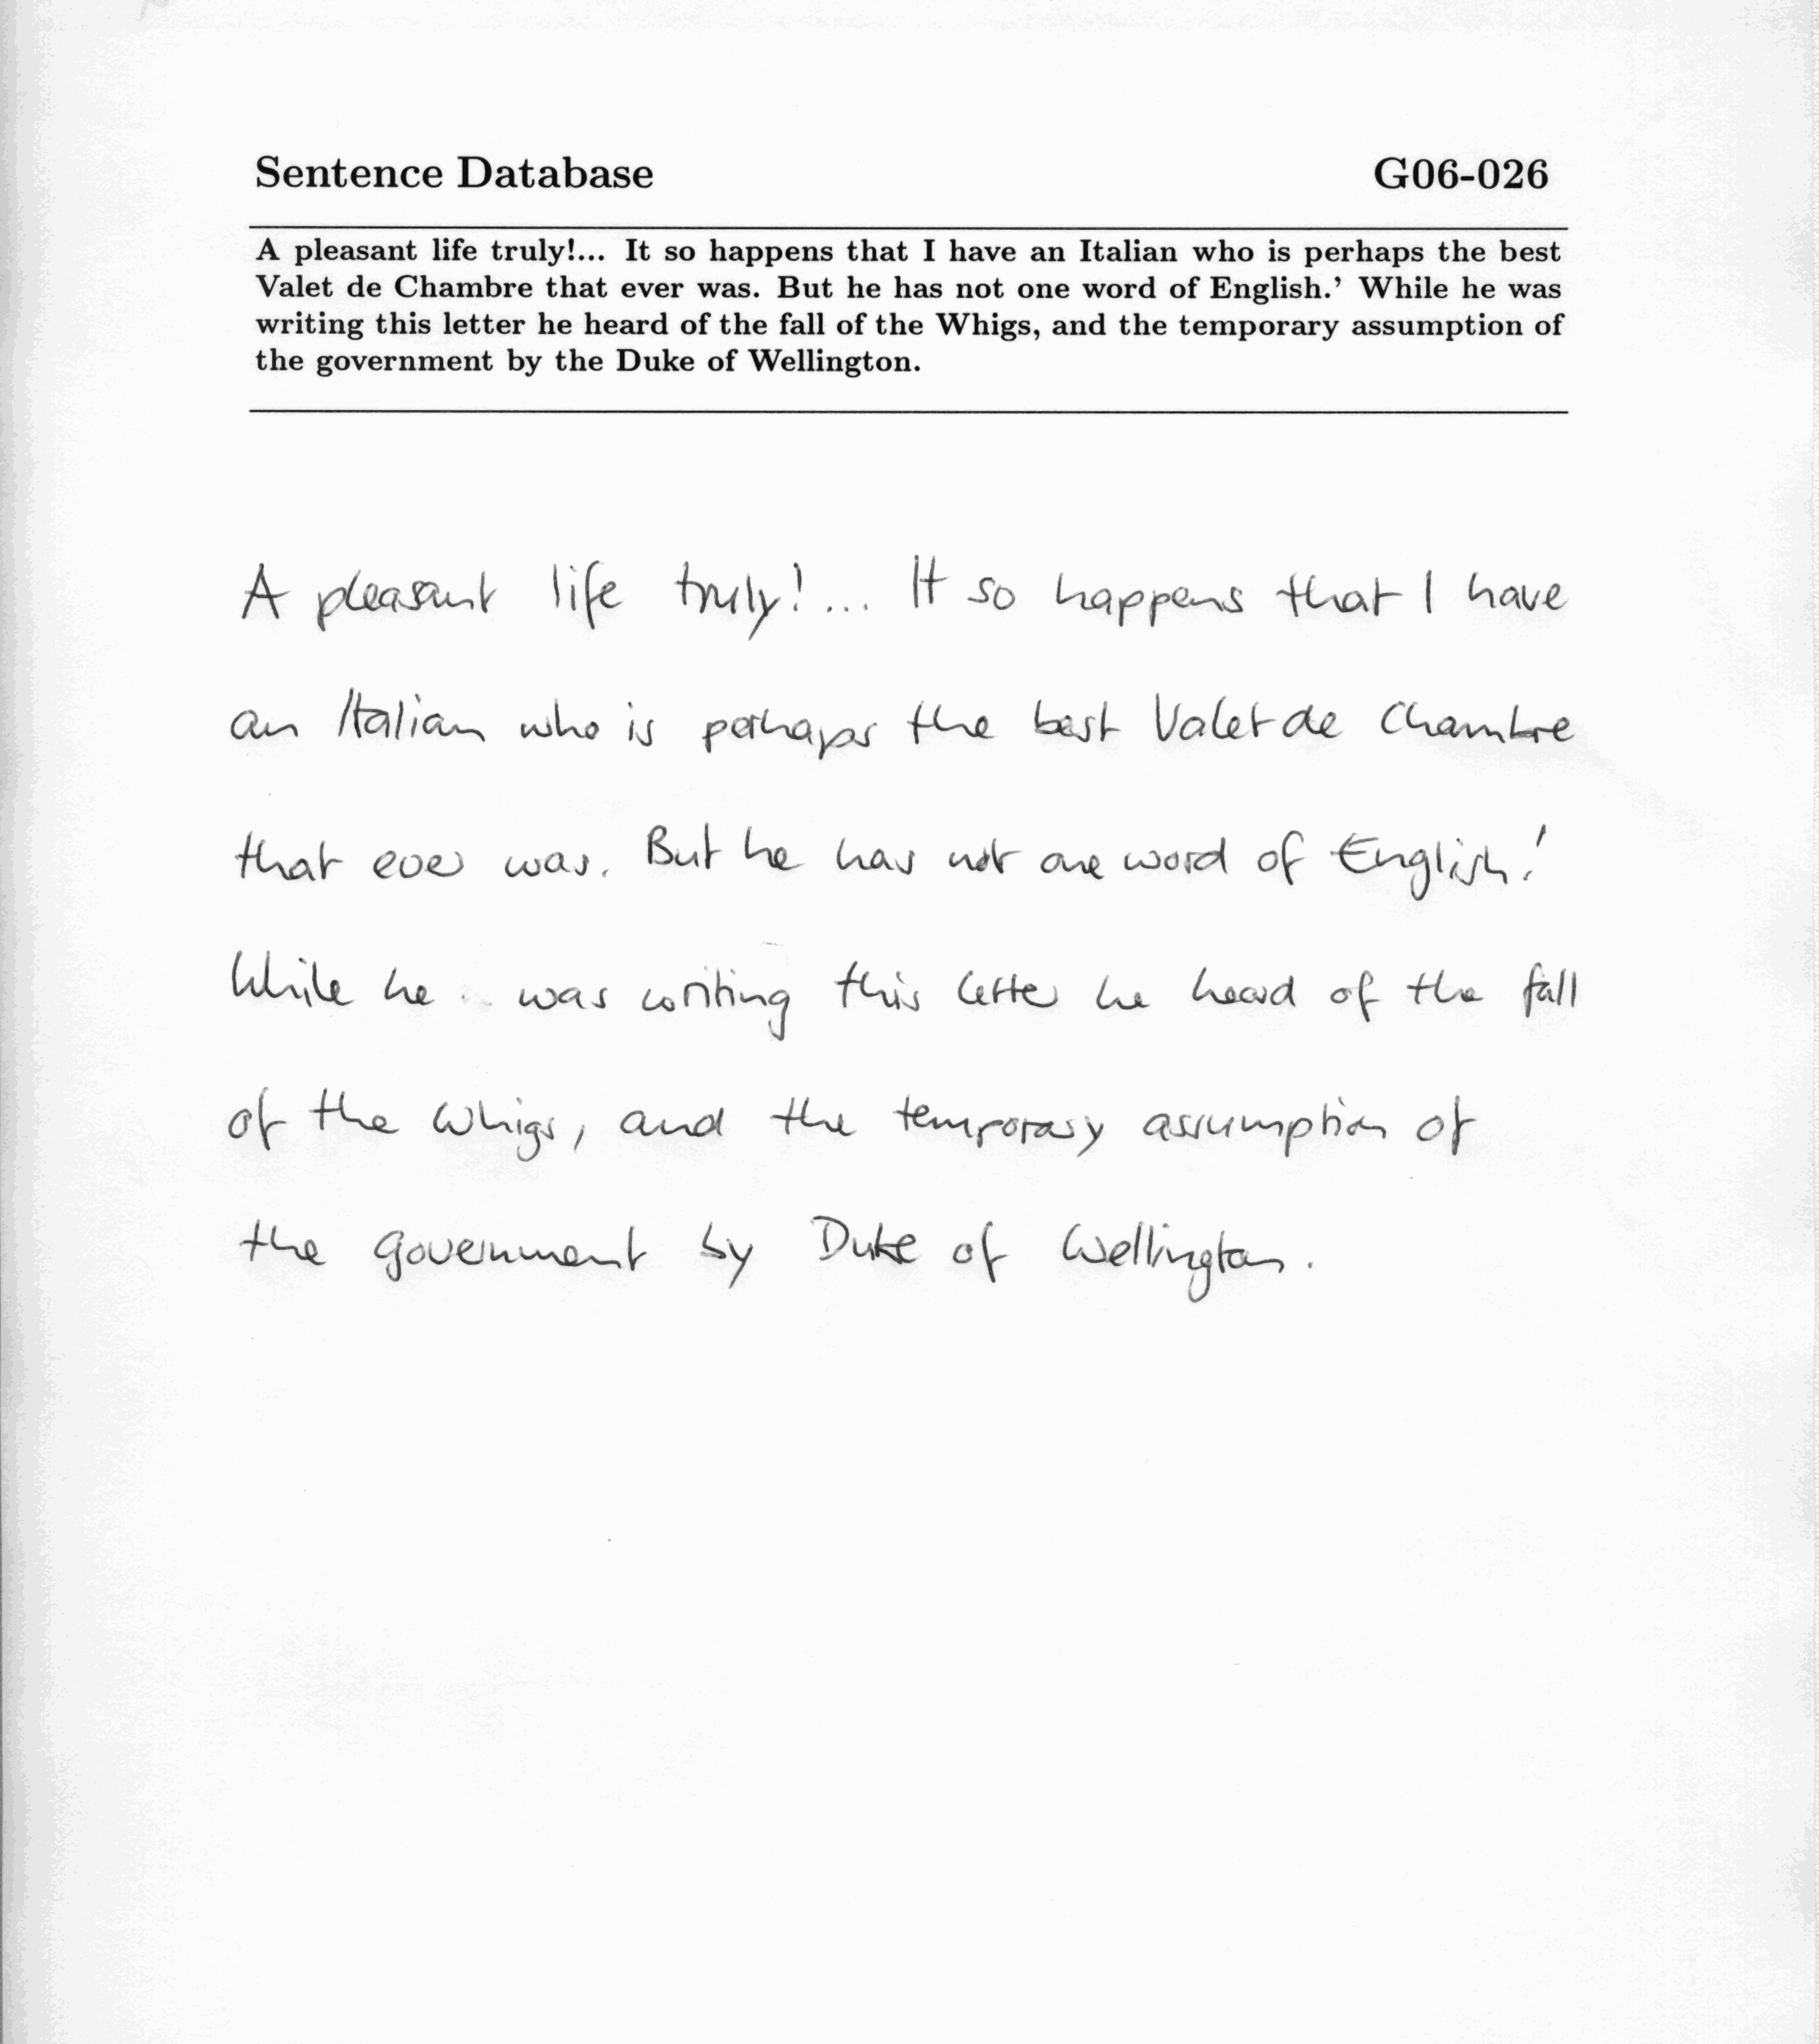 Sentence Database G06-026
A pleasant life truly!... It so happens that I have an Italian who is perhaps the best
Valet de Chambre that ever was. But he has not one word of English.' While he was
writing this letter he heard of the fall of the Whigs, and the temporary assumption of
the government by the Duke of Wellington.
A pleasant life truly!... It so happens that I have
an Italian who is perhaps the best Valet de Chambre
that ever was. But he has not one word of English.'
While he was writing this letter he heard of the fall
of the Whigs, and the temporary assumption of
the government by Duke of Wellington.